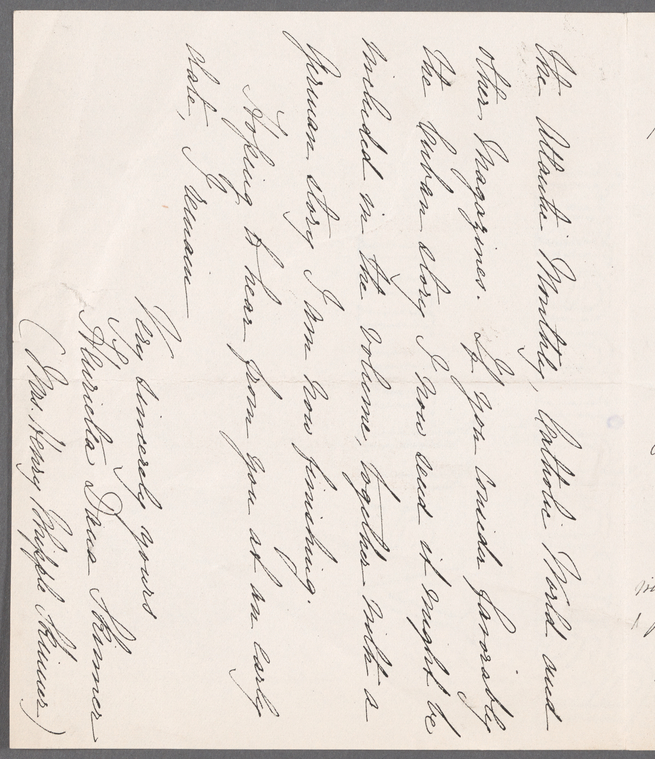 the Atlantic Monthly, Catholic World and
other Magazines. If you consider favorably
the Cuban story I now send it might be
included in the volume, together with a
German story I am now finishing.
Hoping to hear from you at an early
date, I remain
Very sincerely yours
Henrietta Dana Skinner
(Mrs. Henry Whipple Skinner)